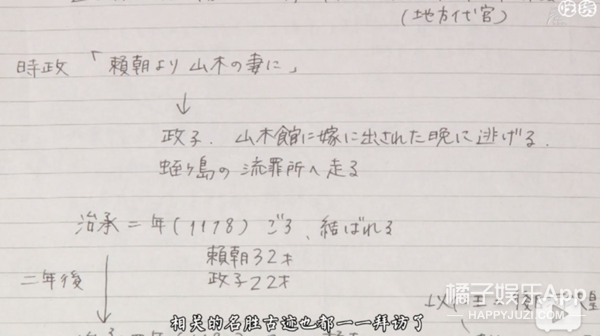 (地方代官)
時政 「頼朝より山木の妻に」
↓
政子. 山木館に嫁に出された晩に逃げる.
蛭ヶ島の流罪所へ走る
治承二年(1178)ごろ、結ばれる
頼朝32才
政子22才
二年後
以仁王
橘子娱乐App
HAPPYJUZI.COM
相关的名胜古迹也都一一拜访了